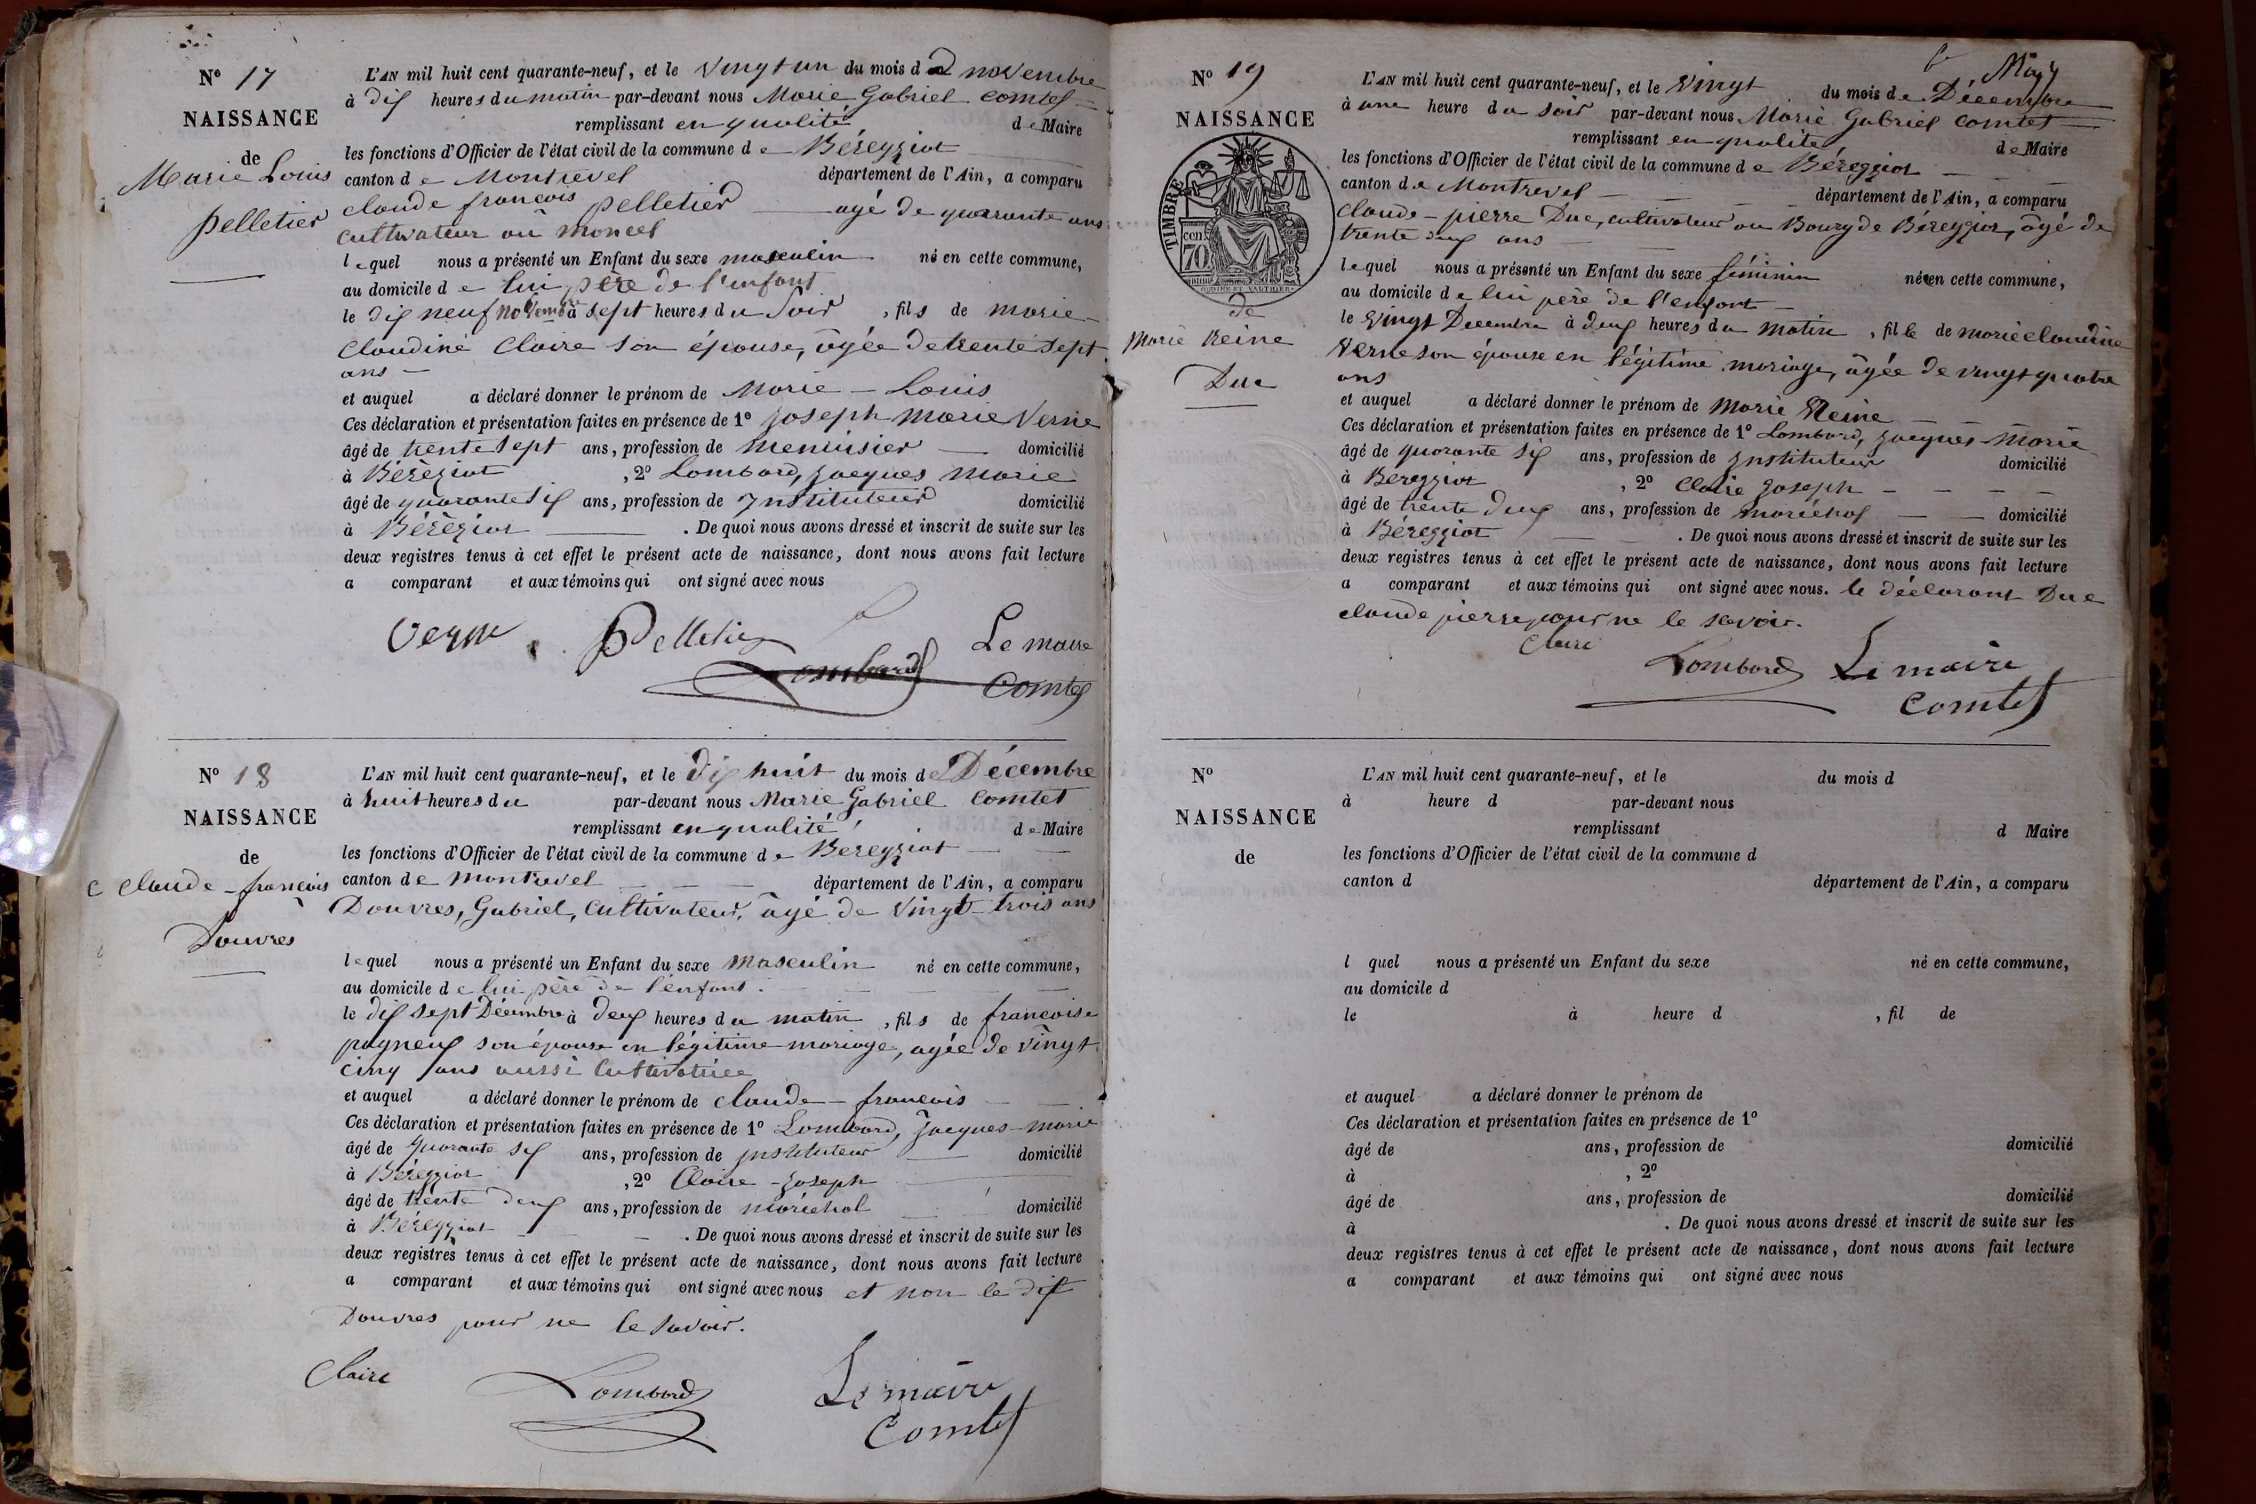 N° 17
NAISSANCE
de
Marie Louis
pelletier
L'AN mil huit cent quarante-neuf, et le vingt un du mois de novembre
à dix heures du matin par-devant nous Marie Gabriel Comtet
remplissant en qualité de Maire
les fonctions d'Officier de l'état civil de la commune de Béreyziat
canton de Montrevel département de l'Ain, a comparu
claude francois pelletier âgé de quarante ans
cultivateur au moncel
lequel nous a présenté un Enfant du sexe masculin né en cette commune,
au domicile de lui père de l'enfant
le dix neuf novembre à sept heures du soir, fils de marie
Claudine Claire son épouse, âgée de trente sept
ans
et auquel a déclaré donner le prénom de Marie - Louis
Ces déclaration et présentation faites en présence de 1° Joseph Marie Verne
âgé de trente sept ans, profession de menuisier domicilié
à Béréziat, 2° Lombard, Jacques Marie
âgé de quarante six ans, profession de Instituteur domicilié
à Béréziat. De quoi nous avons dressé et inscrit de suite sur les
deux registres tenus à cet effet le présent acte de naissance, dont nous avons fait lecture
a comparant et aux témoins qui ont signé avec nous
Verne Pelletier Le maire
Lombard Comtet
N° 18
NAISSANCE
de
claude - francois
Douvres
L'AN mil huit cent quarante-neuf, et le dix huit du mois de Décembre
à huit heures du par-devant nous Marie Gabriel Comtet
remplissant en qualité de Maire
les fonctions d'Officier de l'état civil de la commune de Bereyziat
canton de Montrevel département de l'Ain, a comparu
Douvres, Gabriel, cultivateur, âgé de vingt trois ans
lequel nous a présenté un Enfant du sexe masculin né en cette commune,
au domicile de lui père de l'enfant.
le dix sept Décembre à deux heures du matin, fils de francoise
pugneux son épouse en légitime mariage, agée de vingt
cinq ans aussi cultivatrice
et auquel a déclaré donner le prénom de claude - francois
Ces déclaration et présentation faites en présence de 1° Lombard, Jacques - marie
âgé de quarante six ans, profession de instituteur domicilié
à Béreyziat, 2° Claire - Joseph
âgé de trente deux ans, profession de maréchal domicilié
à Béreyziat. De quoi nous avons dressé et inscrit de suite sur les
deux registres tenus à cet effet le présent acte de naissance, dont nous avons fait lecture
a comparant et aux témoins qui ont signé avec nous et non le dit
Douvres pour ne le savoir.
Claire Lombard Le maire
Comtet
N° 19
NAISSANCE
TIMBRE
70
de
Marie Reine
Duc
L'AN mil huit cent quarante-neuf, et le vingt du mois de Décembre
à une heure du soir par-devant nous Marie Gabriel Comtet
remplissant en qualité de Maire
les fonctions d'Officier de l'état civil de la commune de Béreyziat
canton de Montrevel département de l'Ain, a comparu
claude - pierre Duc, cultivateur au Bourg de Béreyziat, âgé de
trente six ans
lequel nous a présenté un Enfant du sexe féminin né en cette commune,
au domicile de lui père de l'enfant
le vingt Decembre à deux heures du matin, fille de marie claudine
Verne son épouse en légitime mariage, âgée de vingt quatre
ans
et auquel a déclaré donner le prénom de Marie Reine
Ces déclaration et présentation faites en présence de 1° Lombard, Jacques - Marie
âgé de quarante six ans, profession de Instituteur domicilié
à Bereyziat, 2° Claire Joseph
âgé de trente deux ans, profession de maréchal domicilié
à Béreyziat. De quoi nous avons dressé et inscrit de suite sur les
deux registres tenus à cet effet le présent acte de naissance, dont nous avons fait lecture
a comparant et aux témoins qui ont signé avec nous. le déclarant Duc
claude pierre pour ne le savoir.
Claire Lombard Le maire
Comtet
N°
NAISSANCE
de
L'AN mil huit cent quarante-neuf, et le du mois d
à heure d par-devant nous
remplissant d Maire
les fonctions d'Officier de l'état civil de la commune d
canton d département de l'Ain, a comparu
l quel nous a présenté un Enfant du sexe né en cette commune,
au domicile d
le à heure d, fil de
et auquel a déclaré donner le prénom de
Ces déclaration et présentation faites en présence de 1°
âgé de ans, profession de domicilié
à, 2°
âgé de ans, profession de domicilié
à. De quoi nous avons dressé et inscrit de suite sur les
deux registres tenus à cet effet le présent acte de naissance, dont nous avons fait lecture
a comparant et aux témoins qui ont signé avec nous